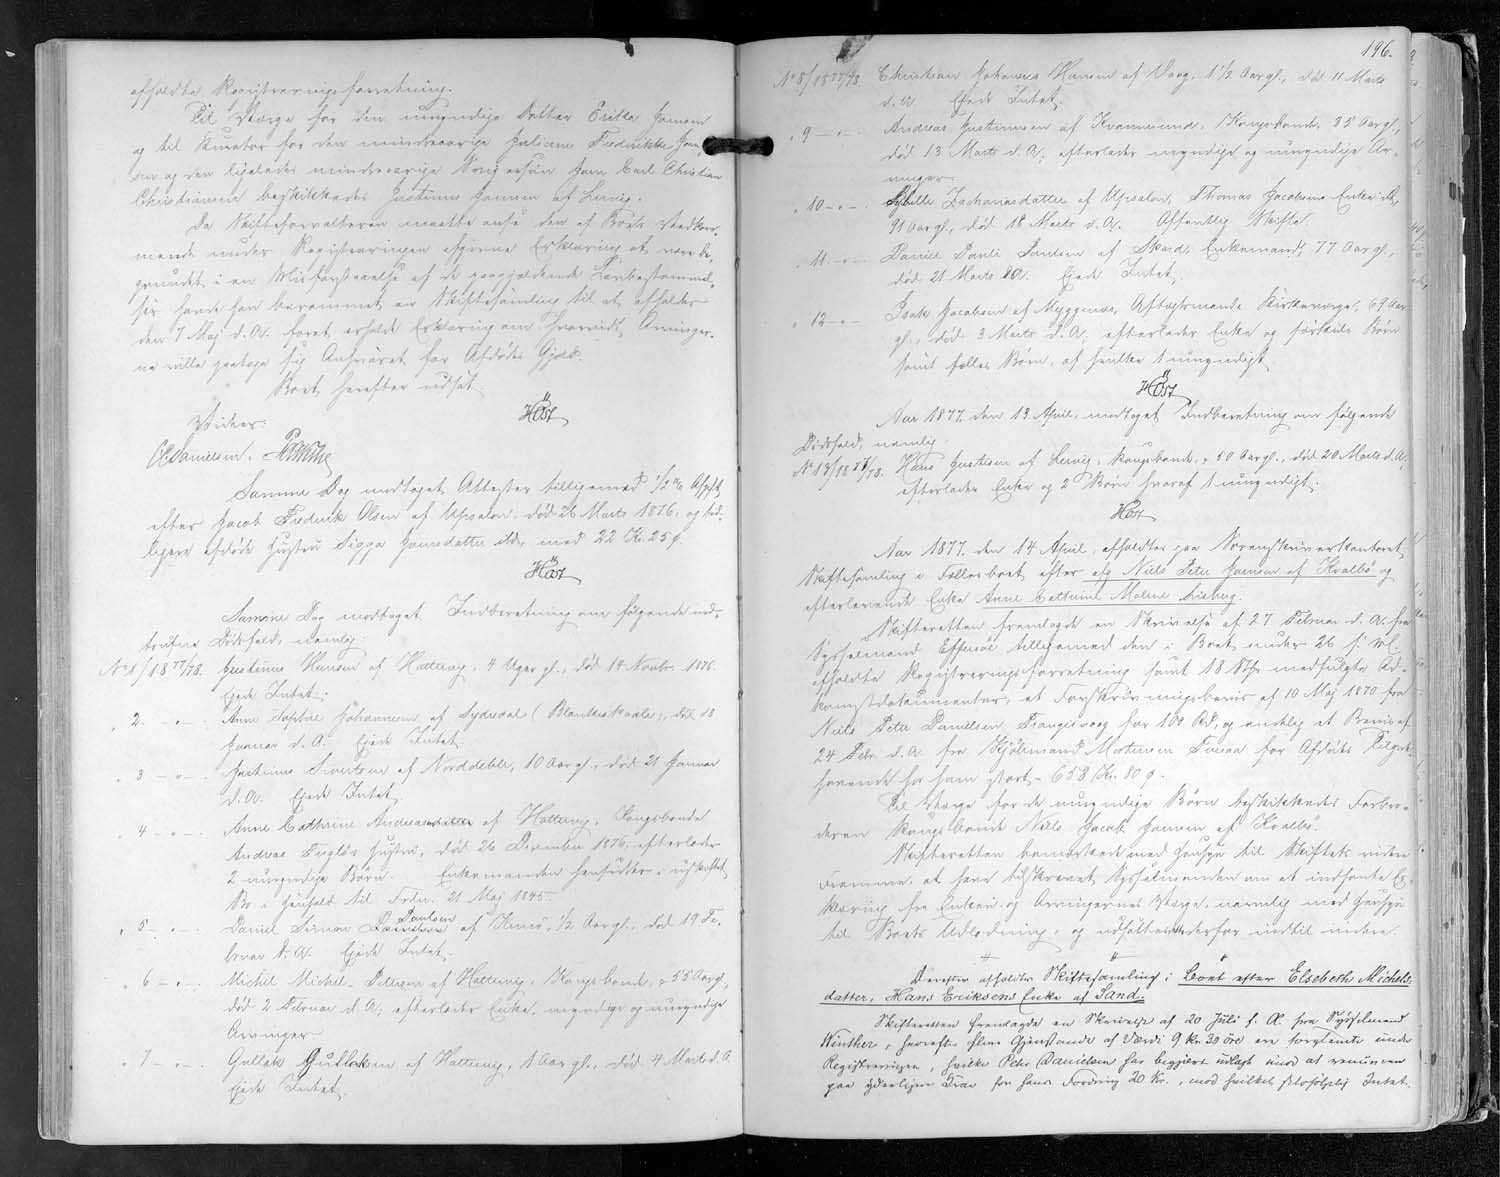 afholdte Registreringsforretning.
Til Værge for den umyndige Datter Erike Jensen
og til Kurator for den mindreaarige Juliane Fredrikke Jen-
sen og den ligeledes mindreaarige Søn Jens Carl Christian
Christiansen beskikkedes Justinus Hansen af Lervig.
Da Skifteforvalteren maatte anse den af Boets Vedkom-
mende under Registreringen afgivne Erklæring at være be-
grundet i en Misforstaaelse af de paagjældende Lovbestemmel-
ser havde han berammet en Skiftesamling til at afholdes
den 7 Maj d. A. forat erholde Erklæring om hvorvidt Arvinger-
ne ville paatage sig Ansvaret for Afdødes Gjæld.
Boet herefter udsat.
Höst
Vidner:
Danielsen.
Samme Dag modtaget Attester tilligemed 1/2 % Afgift
efter Jacob Fredrik Olsen af Upsalon, død 26 Marts 1876, og tid-
ligere afdøde Hustru Sigga Jensdatter ibd., med 22 Kr. 25 ø.
Höst
Samme Dag modtaget Indberetning om følgende ind-
trufne Dødsfald, nemlig:
No 1/1877/78. Justinus Hansen af Hattervig, 4 Uger gl., død 14 Novbr 1876.
Ejede Intet.
" 2 - " - . Anne Sophie Johannesen af Sydredal (Blankeskaale), død 18
Januar d. A. Ejede Intet.
" 3 - " - . Justinus Sivertsen af Norddeble, 10 Aar gl., død 21 Januar
d. A. Ejede Intet.
" 4 - " - . Anne Cathrine Andreasdatter af Hattervig, Kongsbonde
Andreas Hustru, død 26 December 1876, efterlader
2 umyndige Børn. Enkemanden hensidder i uskiftet
Bo i Henhold til Frdn. 21 Maj 1845.
" 5 - " - . Daniel Simon Poulsen af Kunø, 1/2 Aar gl., død 19 Fe-
bruar d. A. Ejede Intet.
" 6 - " - . Michel Michel Petersen af Hattervig, Kongsbonde, 55 Aar gl.,
død 2 Februar d. A., efterlader Enke, myndige og umyndige
Arvinger.
" 7 - " - . Gullak Gullaksen af Hattervig, 1 Aar gl., død 4 Marts d. A.
Ejede Intet.
196.
No 8/1877/78. Christian Johannes Hansen af Vaag, 1 1/2 Aar gl., død 11 Marts
d. A. Ejede Intet.
" 9 - " - . Andreas Justinussen af Kvannesund, Kongsbonde, 85 Aar gl.,
død 13 Marts d. A., efterlader myndige og umyndige Ar-
vinger.
" 10 - " - . Sybille Zachariasdatter af Upsalon, Thomas Jacobsens Enke ibd.,
91 Aar gl., død 18 Marts d. A. Offentlig Skifte.
" 11 - " - Daniel Pauli Poulsen af Skard, Enkemand, 77 Aar gl.,
død 21 Marts d. A. Ejede Intet.
" 12 - " - Isak Jacobsen af Myggenæs, Aftægtsmand, Kirkeværge, 69 Aar
gl., død 3 Marts d. A., efterlader Enke og særskilte Børn
samt fælles Børn, af hvilke 1 umyndigt.
Höst
Aar 1877, den 13 April, modtaget Indberetning om følgende
Dødsfald, nemlig:
No 13/1877/78. Hans Justesen af Lervig, Kongsbonde, 50 Aar gl., død 20 Marts d. A.,
efterlader Enke og 2 Børn hvoraf 1 umyndigt.
Höst
Aar 1877, den 14 April, afholdtes paa Sorenskriverkontoret
Skiftesamling i Fællesboet efter afg. Niels Peter Jensen af Kvalbö og
efterlevende Enke Anne Cathrine Malene
Skifteretten fremlagde en Skrivelse af 27 Februar d. A. fra
Sysselmand Effersöe tilligemed den i Boet under 26 s. M.
afholdte Registreringsforretning samt 18 Stkr medfulgte Ad-
komstdokumenter, et Forskrivningsbevis af 10 Maj 1870 fra
Niels Peter Danielsen Trangisvaag for 100 Rd., og endelig et Bevis af
24 Febr. d. A. fra Kjøbmand Mortensen Tveraa for Afdødes Tilgode-
havende hos ham stort 658 Kr. 80 ø.
Til Værge for de umyndige Børn beskikkedes Farbro-
deren Kongsbonde Niels Jacob Jensen af Kvalbö.
Skifteretten bemærkede med Hensyn til Skiftets videre
Fremme, at have tilskrevet Sysselmanden om at indhente Er-
klæring fra Enken og Arvingernes Værge, navnlig med Hensyn
til Boets Udlodning, og udsattes derfor indtil videre.
Derefter afholdtes Skiftesamling i Boet efter Elsebeth Michels-
datter, Hans Eriksens Enke af Sand.
Skifteretten fremlagde en Skrivelse af 20 Juli f. A. fra Sysselmand
Winther, hvorefter flere Gjenstande af Værdi 9 Kr. 30 Øre ere forglemte under
Registreringen, hvilke Peter Danielsen har begjæret udlagt imod at renuncere
paa yderligere Krav for hans Fordring 20 Kr., mod hvilket selvfølgelig Intet